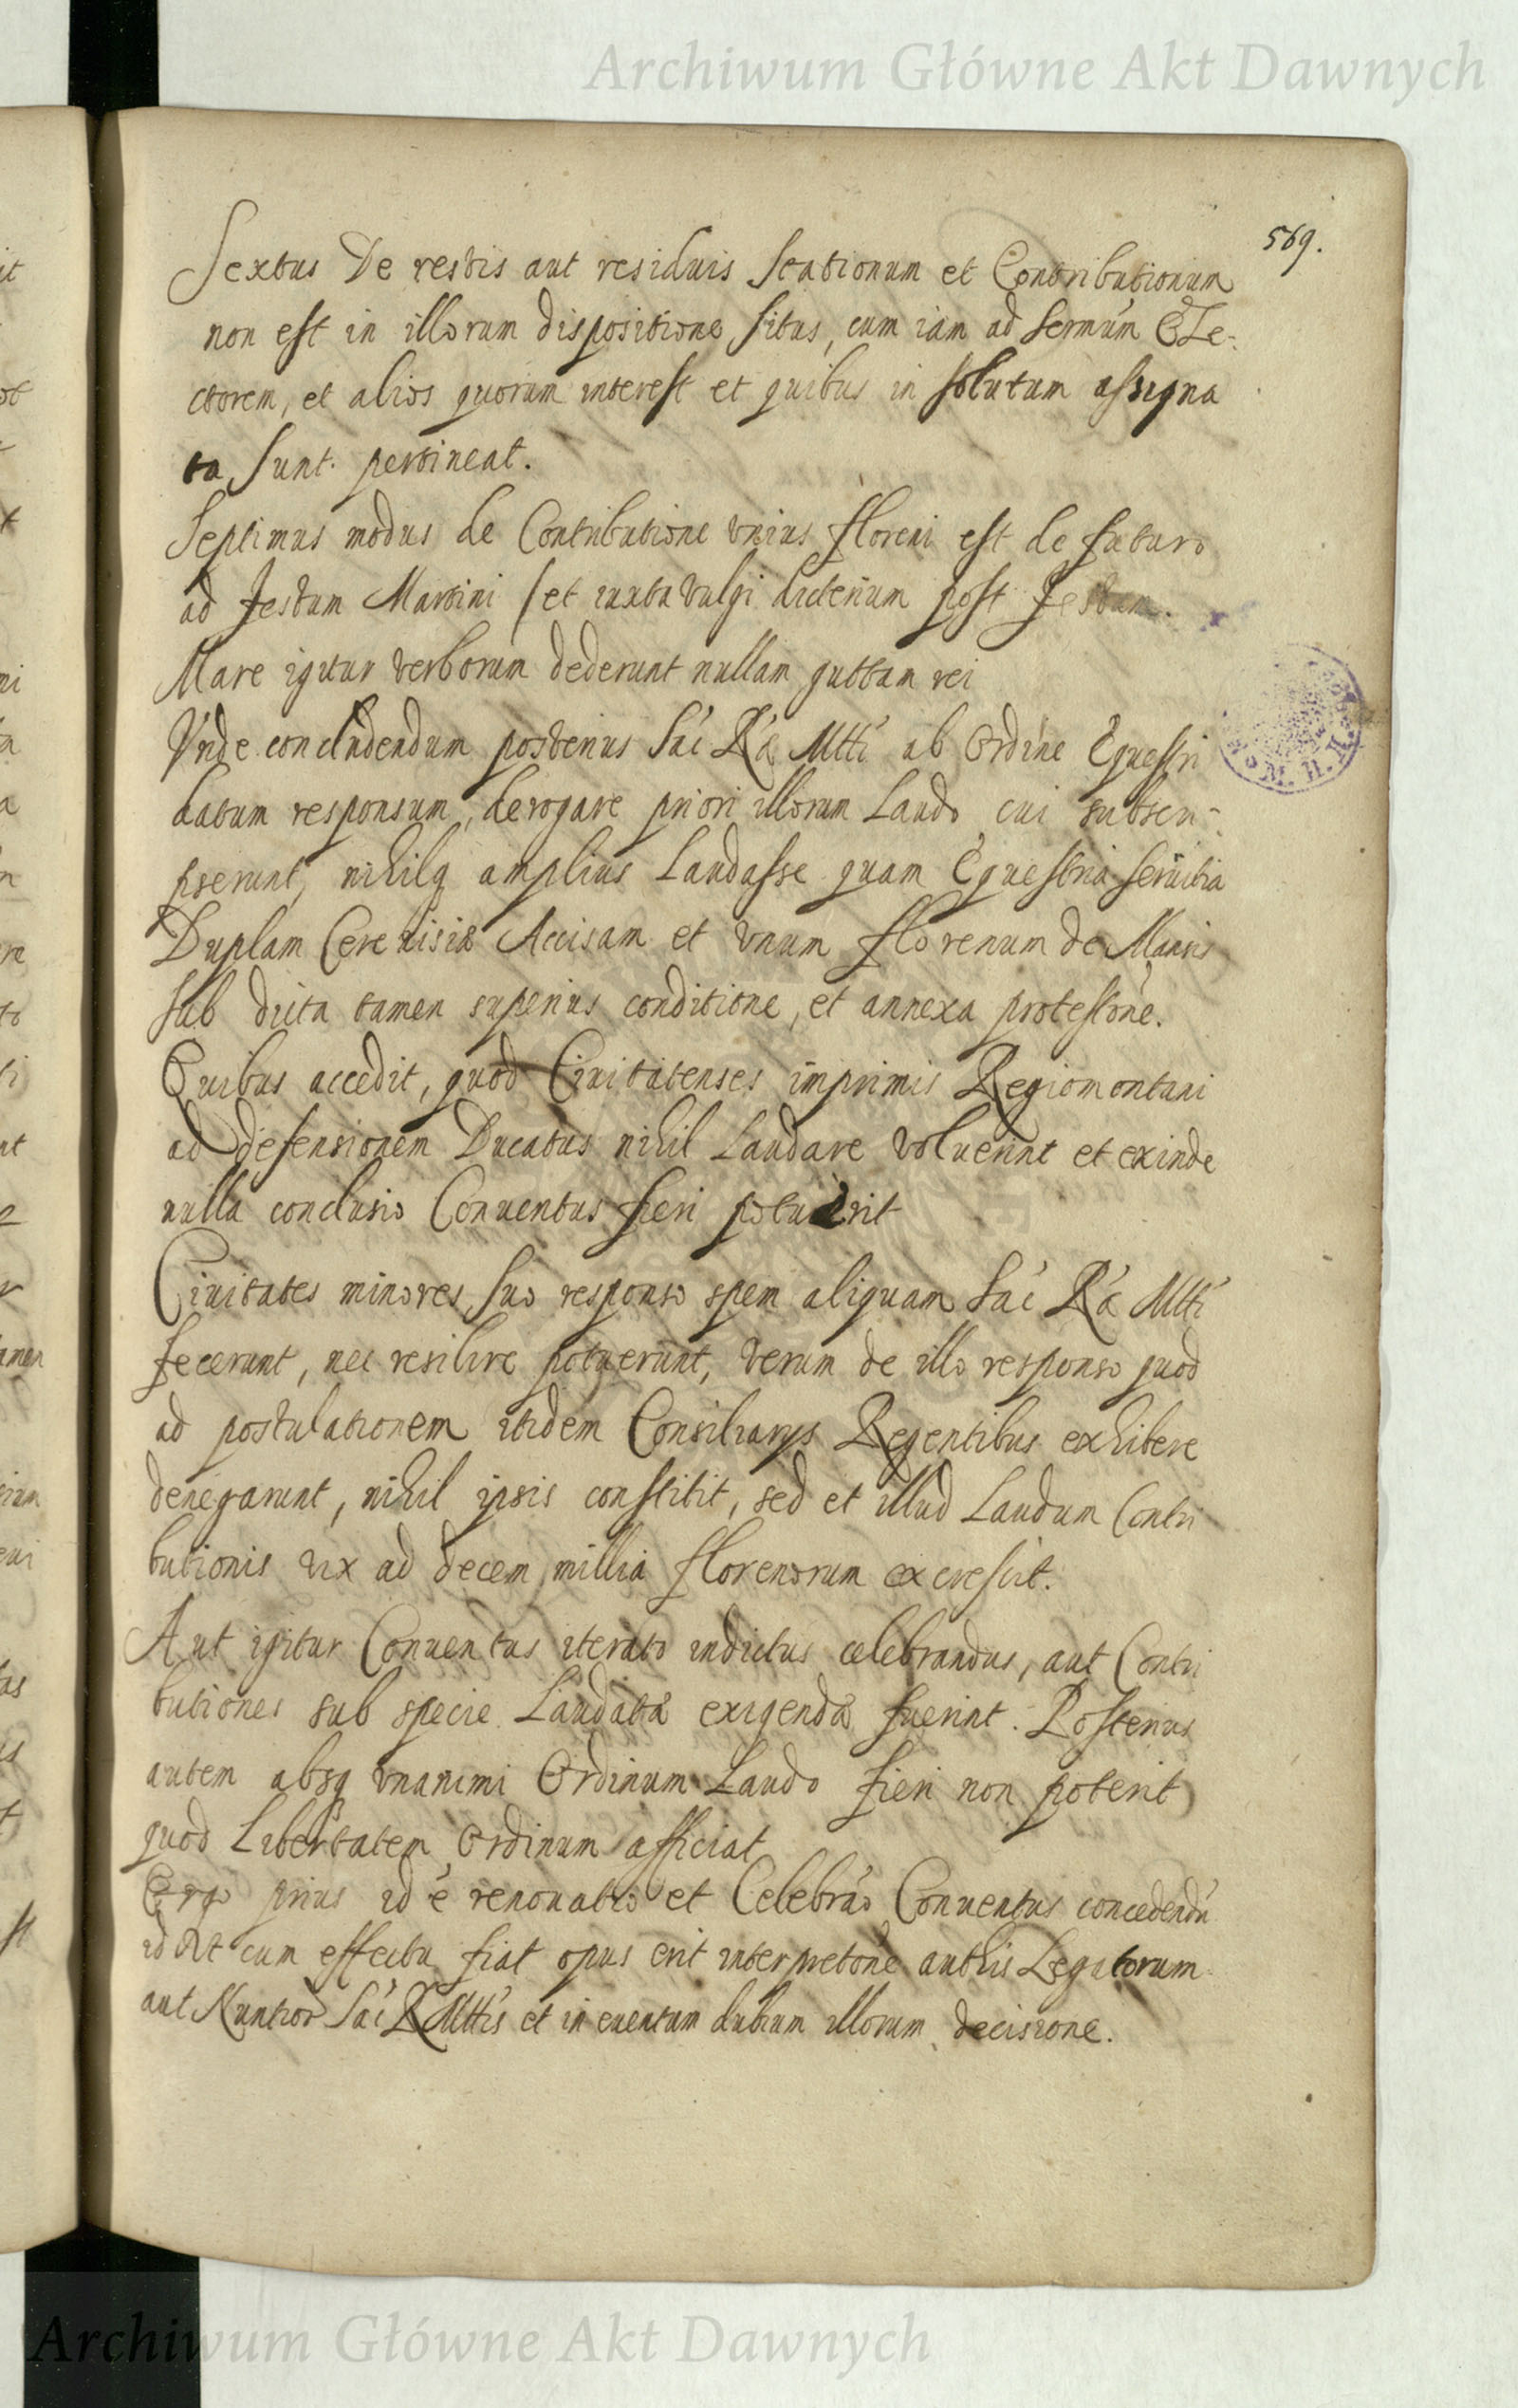 Archiwum Główne Akt Dawnych
569.
Sextus De restis aut residuis Stationum et Contributionum
non est in illorum dispositione situs, cum iam ad Sermum Ele-
ctorem, et alios quorum interest et quibus in solutum assigna
ta sunt pertineat.
Septimus modus de Contributione unius floreni est de futuro
ad festum Martini / et iuxta vulgi dicterium post festum.
Mare igitur verborum dederunt nullam guttam rei
Unde concludendum posterius Sac Ra Mtti ab Ordine Equestri
datum responsum, derogare priori illorum Laudo cui subscri-
pserunt, nihilq amplius Laudasse quam Equestria servitia
Duplam Cerevisiæ Accisam et unum florenum de Mansis
sub dicta tamen superius conditione, et annexa protestone.
Quibus accedit, quod Civitatenses imprimis Regiomontani
ad defensionem Ducatus nihil Laudare voluerint et exinde
nulla conclusio Conventus fieri potuerit
Civitates minores suo responso spem aliquam Sac Ra Mtti
fecerunt, nec resilire potuerunt, verum de illo responso quod
ad postulationem itidem Consiliarys Regentibus exhibere
denegarunt, nihil ipsis constitit, sed et illud Laudum Contri
butionis vix ad decem millia florenorum excrescit.
Aut igitur Conventus iterato indictus celebrandus, aut Contri
butiones sub specie Laudatæ exigendæ fuerint. Posterius
autem absq unanimi Ordinum Laudo fieri non poterit
quod Libertatem Ordinum afficiat
Ergo prius id é renovatio et Celebrao Conventus concedendu
id ut cum effectu fiat opus erit interpretone Legatorum
aut Nuntior Sac R Mttis et in eventum dubium illorum decisione.
Archiwum Główne Akt Dawnych